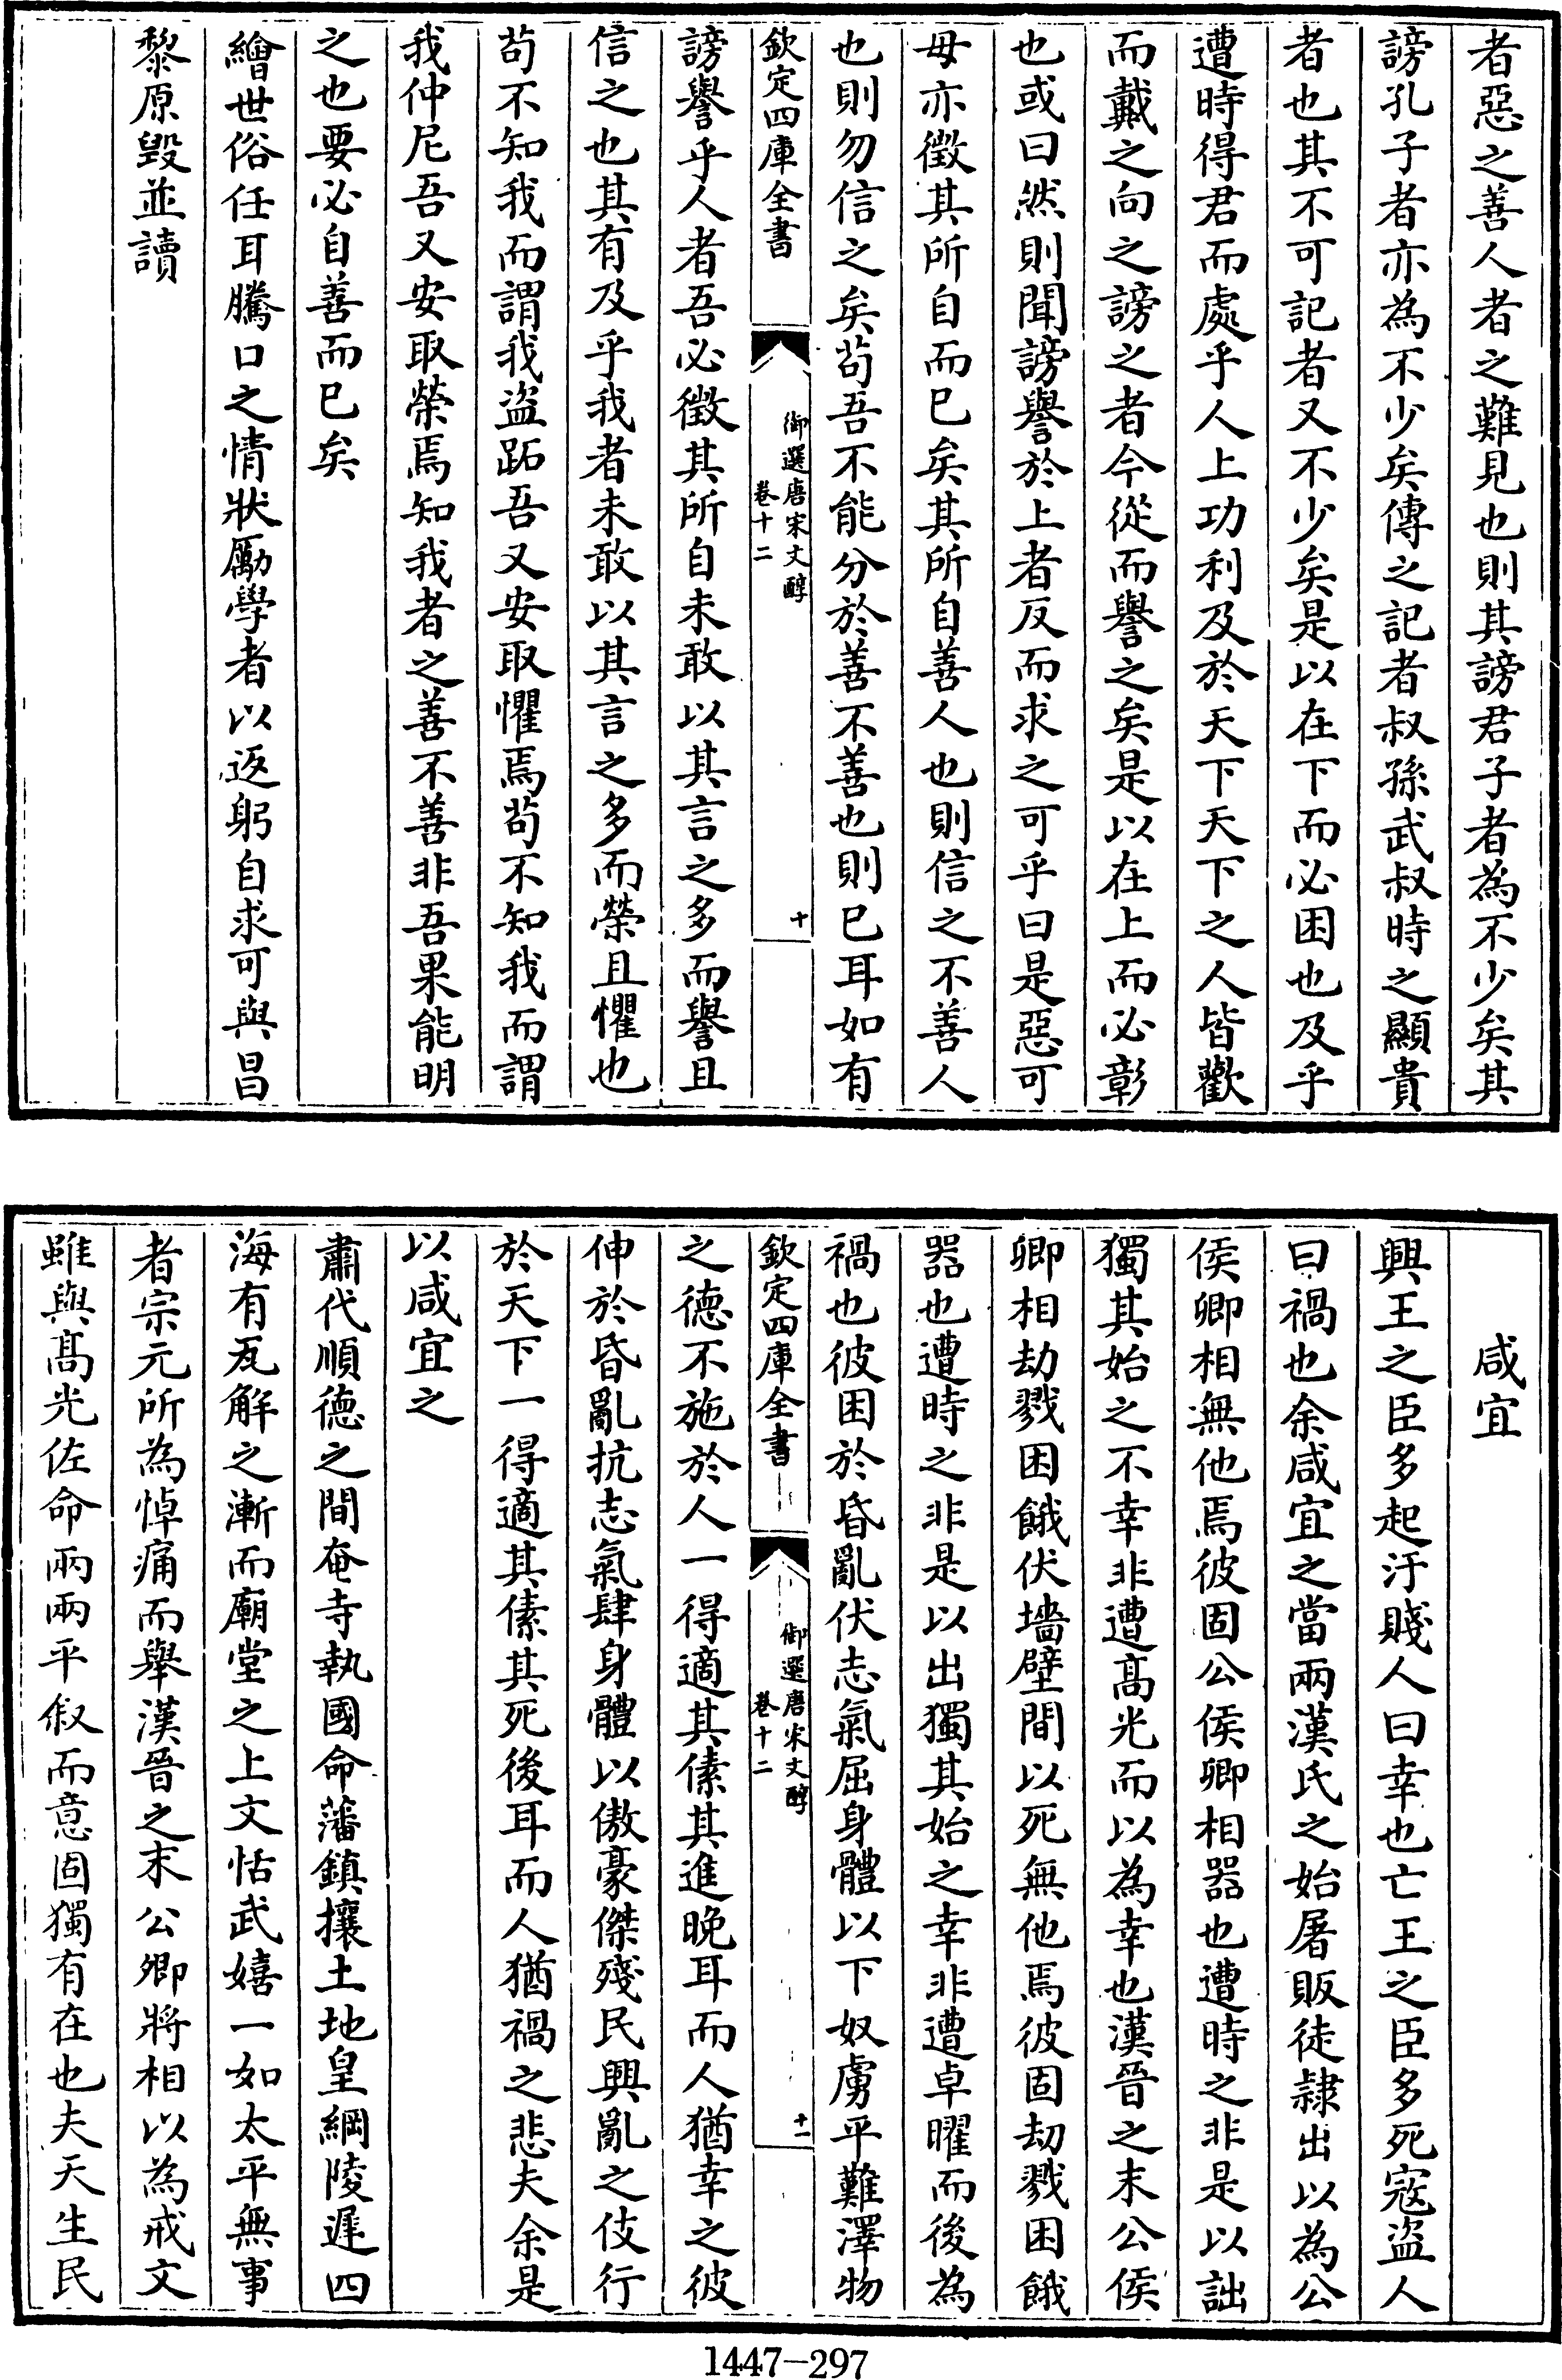 者惡之善人者之難見也則其謗君子者為不少矣其
謗孔子者亦為不少矣傳之記者叔孫武叔時之顯貴
者也其不可記者又不少矣是以在下而必困也及乎
遭時得君而處乎人上功利及於天下天下之人皆歡
而戴之向之謗之者今從而譽之矣是以在上而必彰
也或曰然則聞謗譽於上者反而求之可乎曰是惡可
毋亦徵其所自而已矣其所自善人也則信之不善人
也則勿信之矣茍吾不能分於善不善也則已耳如有
欽定四庫全書
御選唐宋文醇
卷十二
十
謗譽乎人者吾必徵其所自未敢以其言之多而譽且
信之也其有及乎我者未敢以其言之多而榮且懼也
茍不知我而謂我盜跖吾又安取懼焉茍不知我而謂
我仲尼吾又安取榮焉知我者之善不善非吾果能明
之也要必自善而已矣
繪世俗任耳騰口之情狀勵學者以返躬自求可與昌
黎原毀並讀
咸宜
興王之臣多起汙賤人曰幸也亡王之臣多死寇盜人
曰禍也余咸宜之當兩漢氏之始屠販徒隸出以為公
侯卿相無他焉彼固公侯卿相器也遭時之非是以詘
獨其始之不幸非遭高光而以為幸也漢晉之末公侯
卿相劫戮困餓伏墻壁間以死無他焉彼固劫戮困餓
器也遭時之非是以出獨其始之幸非遭卓曜而後為
禍也彼困於昏亂伏志氣屈身體以下奴虜平難澤物
欽定四庫全書
御選唐宋文醇
卷十二
十一
之德不施於人一得適其傃其進晚耳而人猶幸之彼
伸於昏亂抗志氣肆身體以傲豪傑殘民興亂之伎行
於天下一得適其傃其死後耳而人猶禍之悲夫余是
以咸宜之
肅代順德之間奄寺執國命藩鎮攘土地皇綱陵遲四
海有瓦解之漸而廟堂之上文恬武嬉一如太平無事
者宗元所為悼痛而舉漢晉之末公卿將相以為戒文
雖與高光佐命兩兩平叙而意固獨有在也夫天生民
1447—297